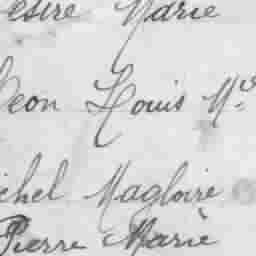 ésiré Marie
Léon Louis Mie
ichel Magloire
Pierre Marie